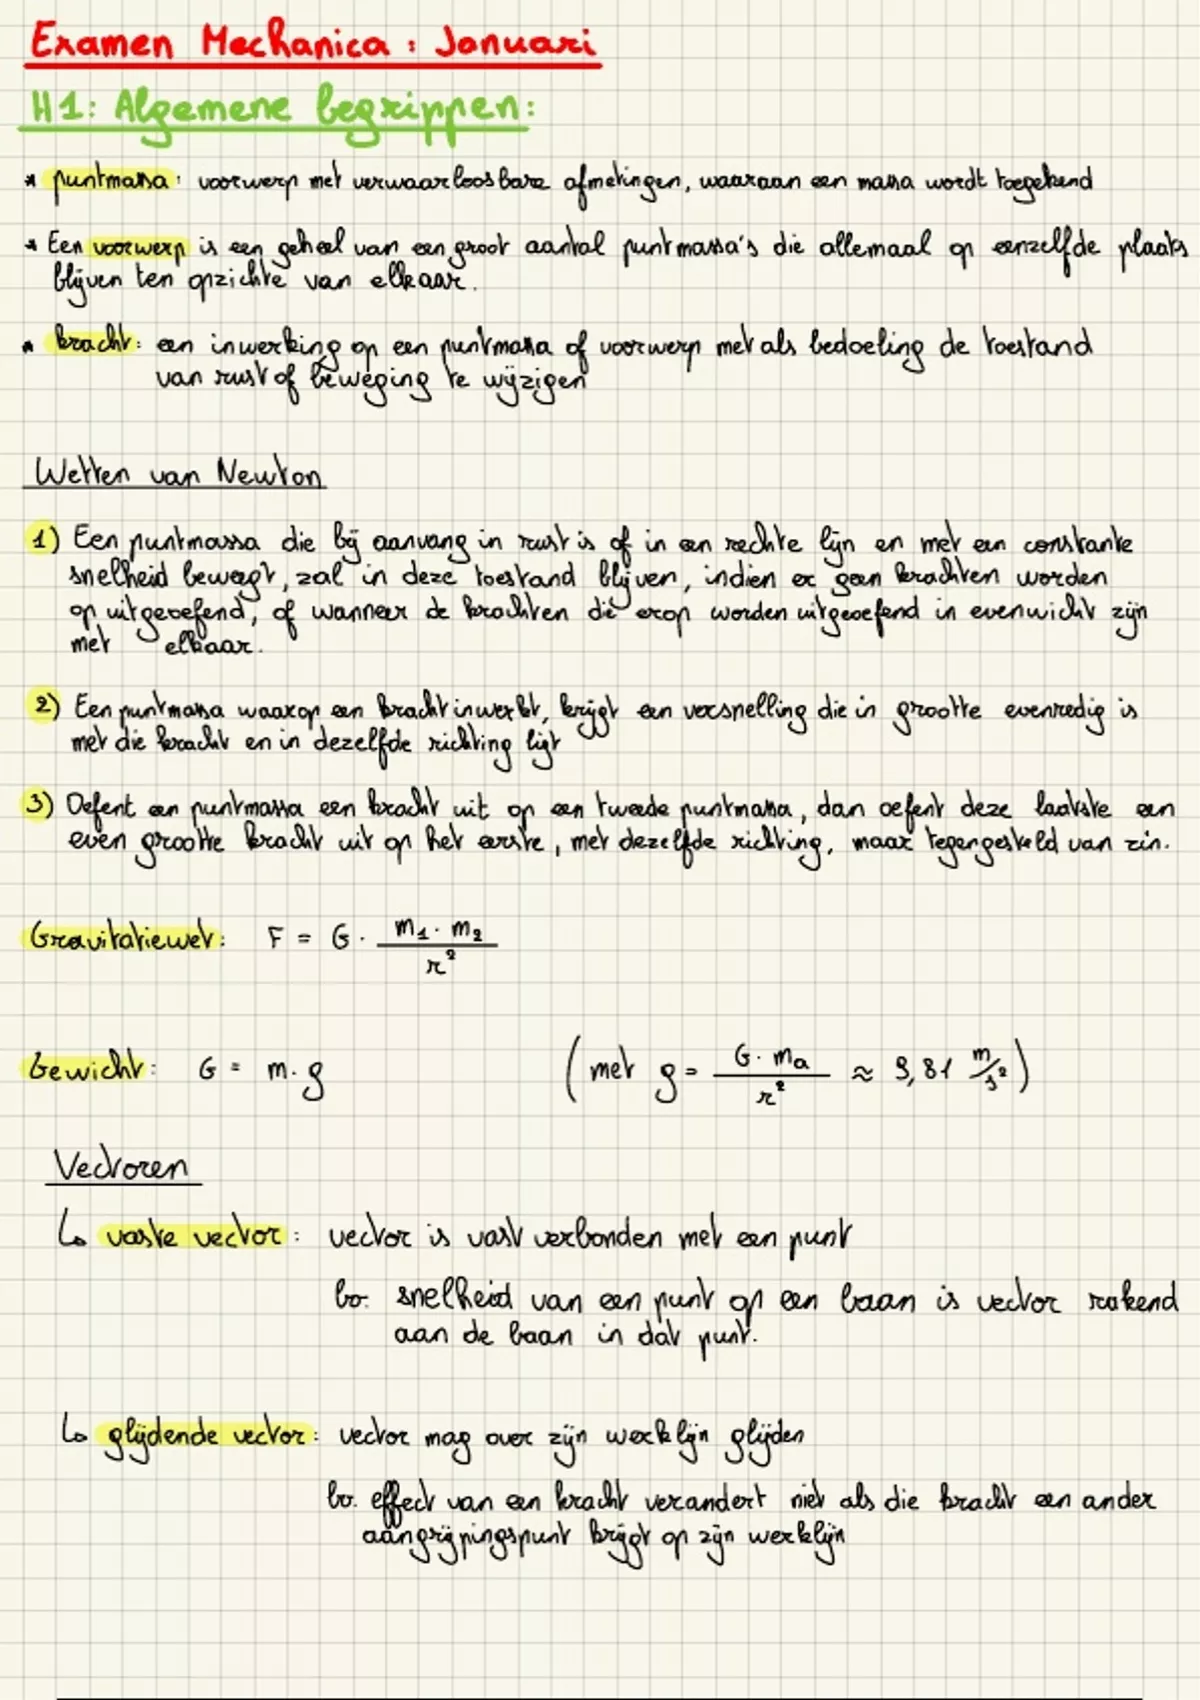 Examen Mechanica : Januari
H1: Algemene begrippen:
* puntmassa: voorwerp met verwaarloosbare afmetingen, waaraan een massa wordt toegekend
* Een voorwerp is een geheel van een groot aantal puntmassa's die allemaal op eenzelfde plaats
blijven ten opzichte van elkaar.
* kracht: een inwerking op een puntmassa of voorwerp met als bedoeling de toestand
van rust of beweging te wijzigen
Wetten van Newton
1) Een puntmassa die bij aanvang in rust is of in een rechte lijn en met een constante
snelheid beweegt, zal in deze toestand blijven, indien er geen krachten worden
op uitgeoefend, of wanneer de krachten die erop worden uitgeoefend in evenwicht zijn
met elkaar.
2) Een puntmassa waarop een kracht inwerkt, krijgt een versnelling die in grootte evenredig is
met die kracht en in dezelfde richting ligt
3) Oefent een puntmassa een kracht uit op een tweede puntmassa, dan oefent deze laatste een
even grootte kracht uit op het eerste, met dezelfde richting, maar tegengesteld van zin.
Gravitatiewet: F = G · m₁ · m₂ / r²
Gewicht: G = m · g (met g = G · mₐ / r² ≈ 9,81 m/s²)
Vectoren
↳ vaste vector: vector is vast verbonden met een punt
bv. snelheid van een punt op een baan is vector rakend
aan de baan in dat punt.
↳ glijdende vector: vector mag over zijn werklijn glijden
bv. effect van een kracht verandert niet als die kracht een ander
aangrijpingspunt krijgt op zijn werklijn